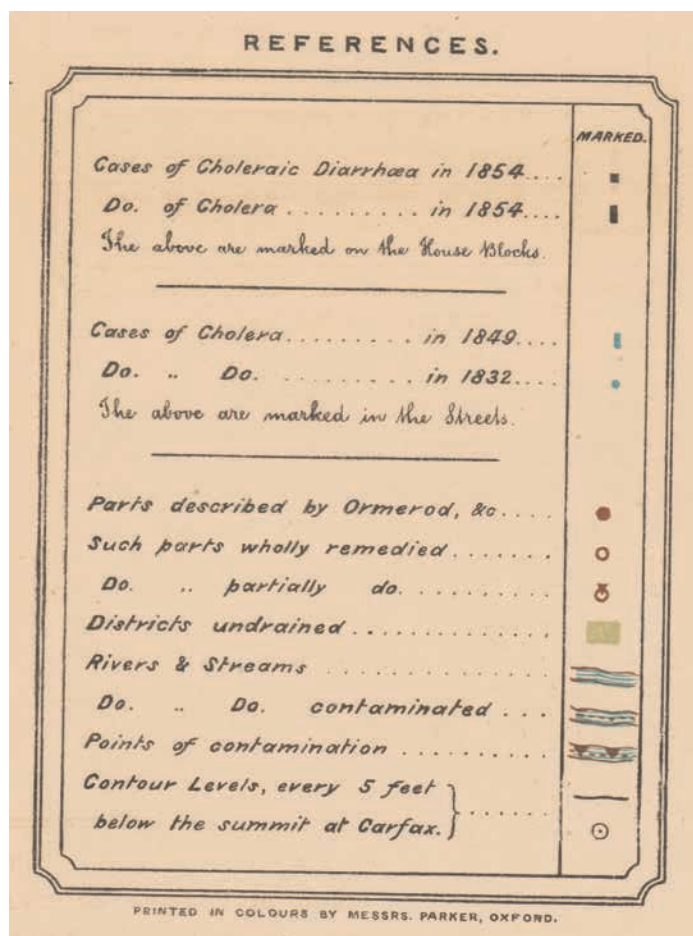 REFERENCES.
MARKED.
Cases of Choleraic Diarrhœa in 1854....
Do. of Cholera ......... in 1854....
The above are marked on the House Blocks.
Cases of Cholera......... in 1849....
Do. „ Do. ......... in 1832....
The above are marked in the Streets.
Parts described by Ormerod, &c....
Such parts wholly remedied.......
Do. „ partially do...........
Districts undrained..............
Rivers & Streams ...............
Do. „ Do. contaminated ...
Points of contamination ..........
Contour Levels, every 5 feet
below the summit at Carfax. ......
PRINTED IN COLOURS BY MESSRS. PARKER, OXFORD.